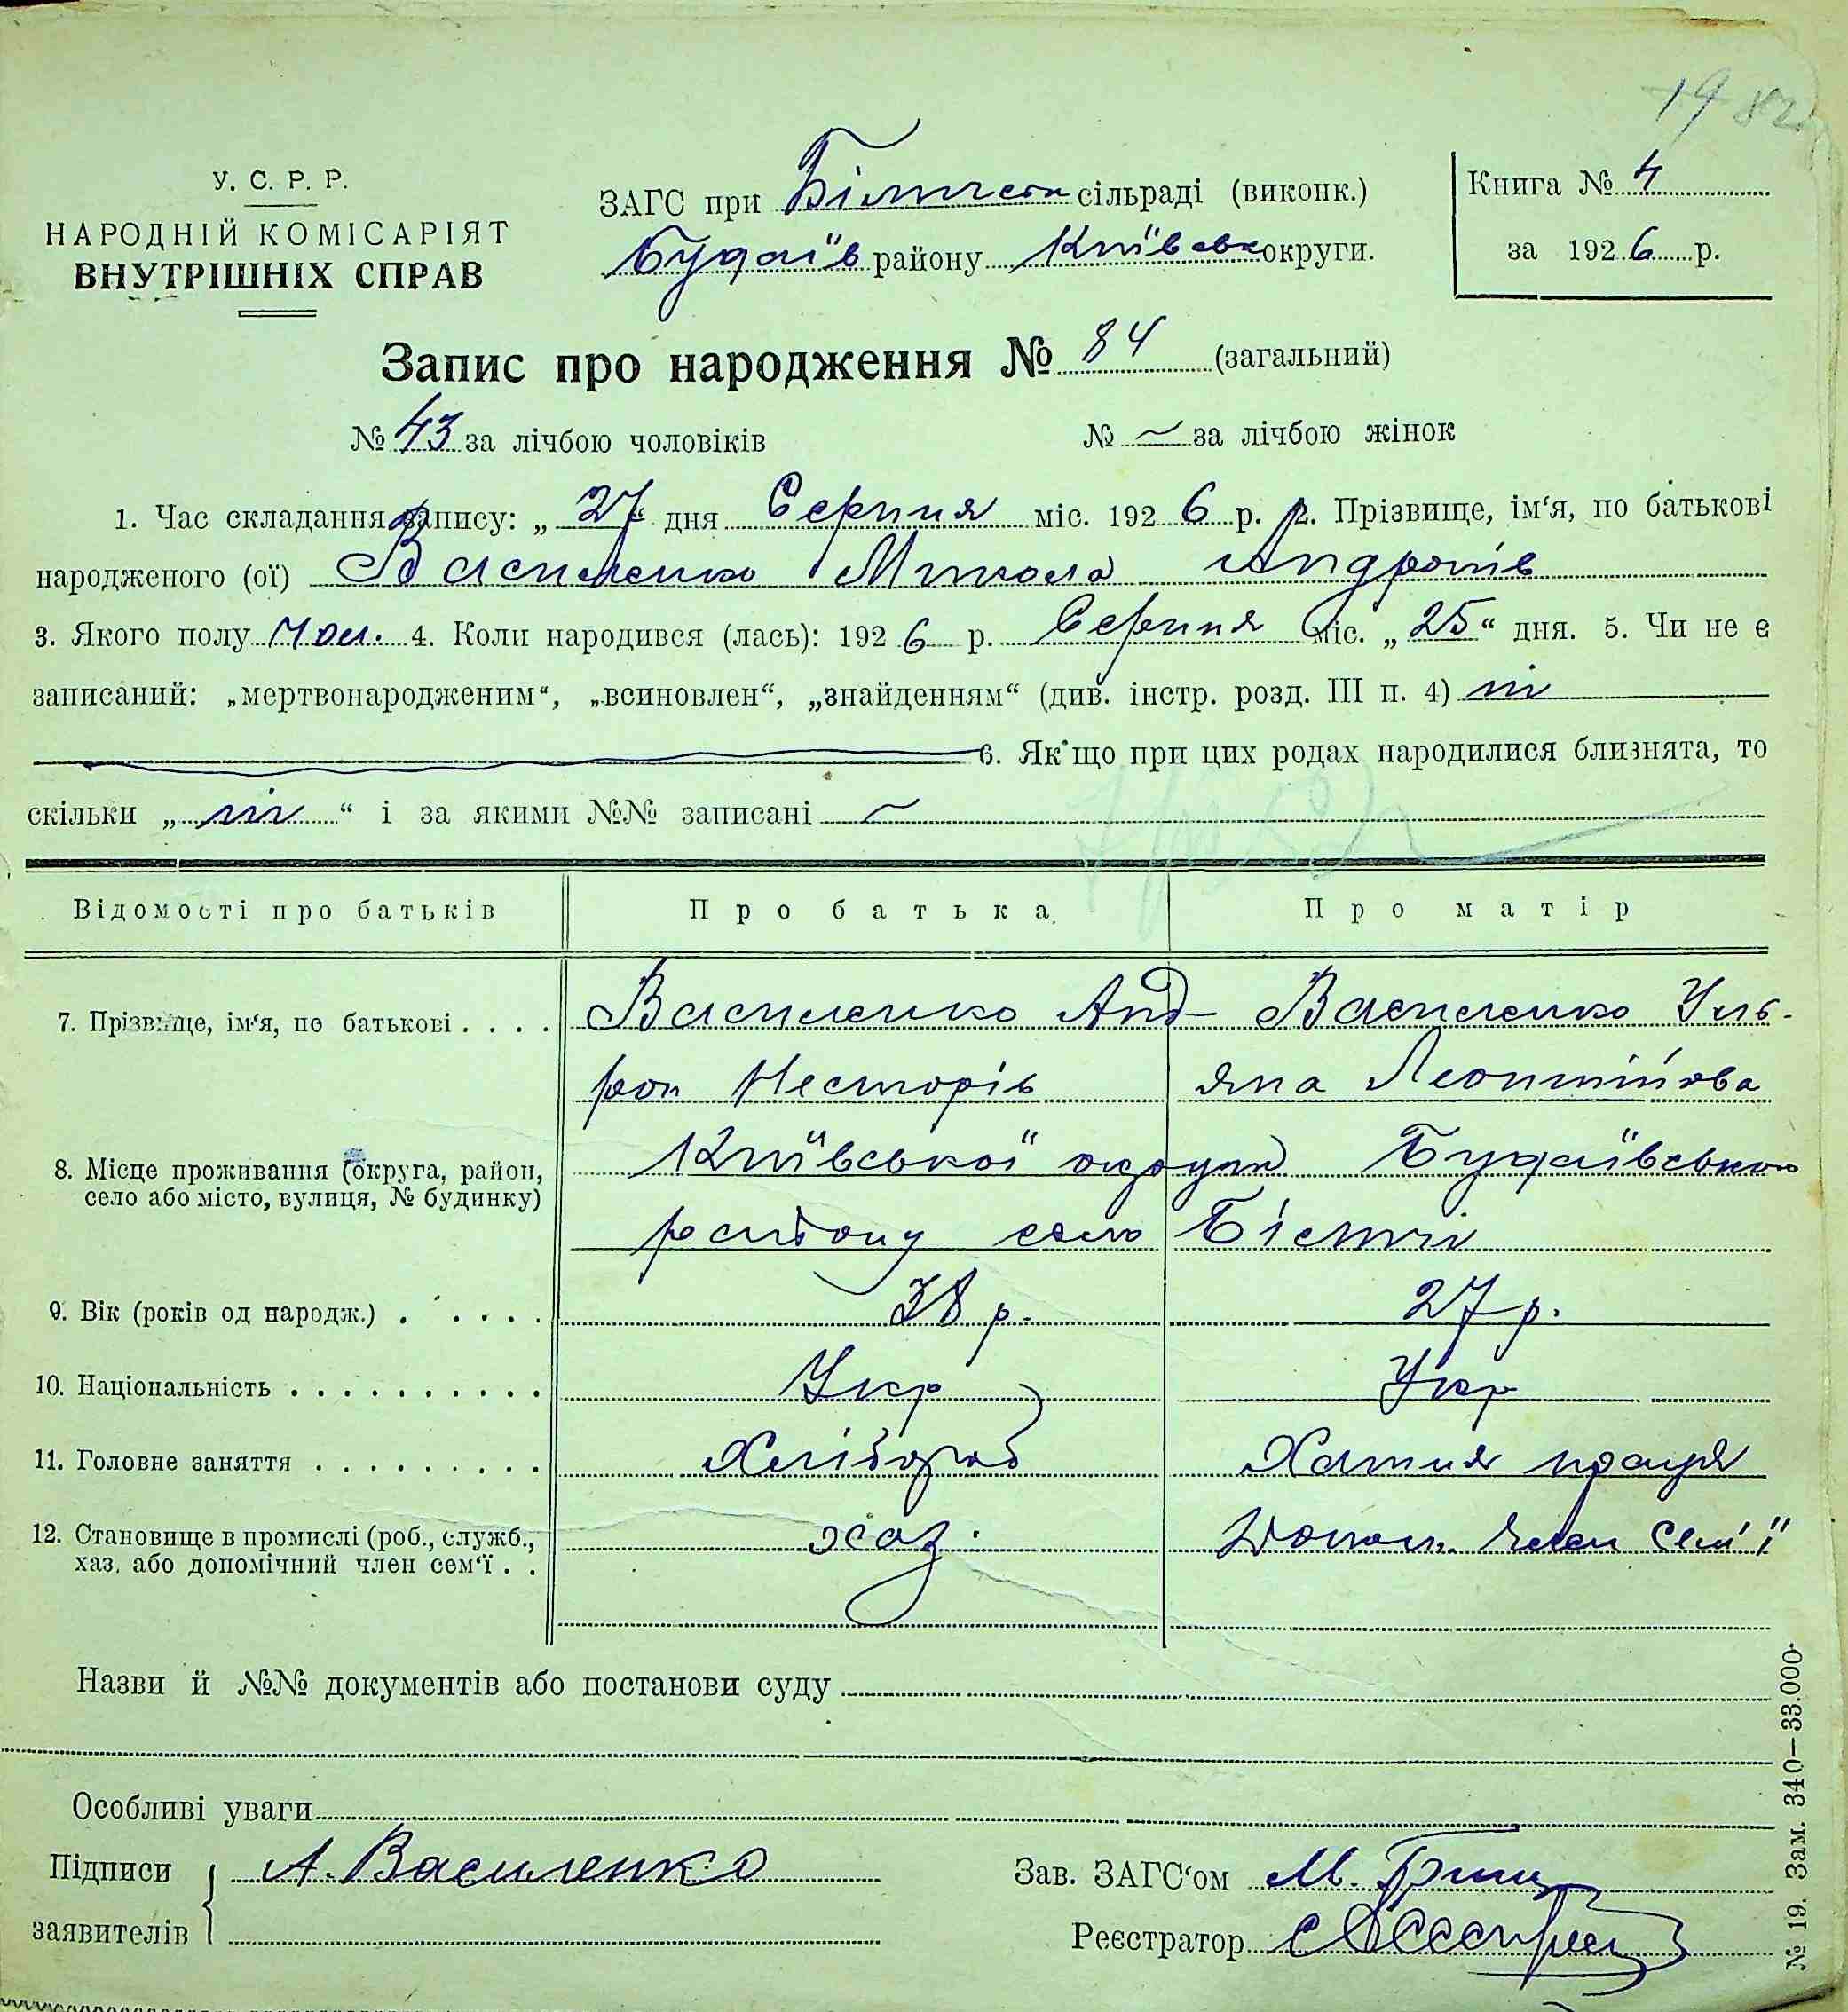 У. С. Р. Р.
НАРОДНІЙ КОМІСАРІЯТ
ВНУТРІШНІХ СПРАВ
ЗАГС при сільраді (виконк.)
Будаїв району Київськ округи.
Книга № 4
за 1926 р.
Запис про народження № 84 (загальний)
№ 43 за лічбою чоловіків № ~ за лічбою жінок
1. Час складання запису: „ 27 дня Серпня міс. 1926 р. 2. Прізвище, ім‘я, по батькові
народженого (ої) Василенко Микола Андронів
3. Якого полу Чол. 4. Коли народився (лась): 1926 р. Серпня міс. „ 25 “ дня. 5. Чи не є
записаний: „мертвонародженим“, „всиновлен“, „знайденням“ (див. інстр. розд. III п. 4) ні
6. Як що при цих родах народилися близнята, то
скільки „ ні “ і за якими №№ записані ~
Відомості про батьків Про батька Про матір
7. Прізвище, ім‘я, по батькові . . . . Василенко Анд- Василенко Уль-
рон Несторів яна Леонтійова
8. Місце проживання (округа, район, Київської округи Будаївського
село або місто, вулиця, № будинку)
району село Біличі
9. Вік (років од народж.) . . . . . 38 р. 27 р.
10. Національність . . . . . . . . . . Укр Укр
11. Головне заняття . . . . . . . . . . Хлібороб Хатня праця
12. Становище в промислі (роб., служб., хаз. Допом. член сем'ї
хаз. або допомічний член сем‘ї . .
Назви й №№ документів або постанови суду
Особливі уваги
Підписи А. Василенко
заявителів
Зав. ЗАГС‘ом М.
Реєстратор
№ 19. Зам. 340—33.000